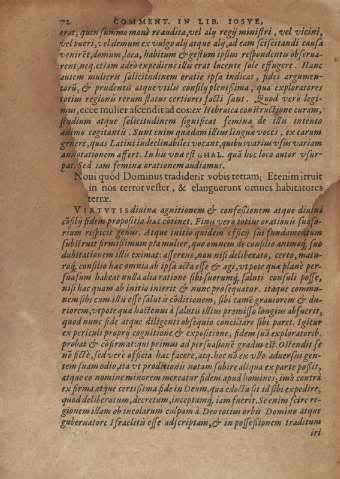 72 COMMENT. IN LIB. IOSVE,
erat, quin summo manè re audita, vel aly regÿ ministri, vel vicini,
vel pueri, vel demum ex vulgo alÿ atque alÿ, ad eam sciscitandi causa
venirēt, domum, loca, habitum & gestum ipsius respondentis observa-
rent, neq. etiam adeò expediens illu erat lucente sole effugere. Hanc
autem mulieris solicitudinem oratio ipsa indicat, fides argumen-
torū, & prudentia atque vtilis consilÿ plenissima, qua exploratores
totius regionis rerum status certiores facti sunt. Quod verò legi-
mus, ecce mulier ascendit ad eos ex Hebraica constructione earum,
studium atque solicitudinem significat femina de illis intento
animo cogitantis. Sunt enim quædam istius linguæ voces, ex earum
genere, quas Latini indeclinabiles vocant, quibus varius vsus variam
annotationem affert. In hu vna est GHAL. quâ hoc loco autor vsur-
pat. Sed iam femina orationem audiamus.
Noui quòd Dominus tradiderit vobis terram; Etenim irruit
in nos terror vester, & elanguerunt omnes habitatores
terræ.
VIRTVTIS divina agnitionem & confessionem atque divini
cōsilÿ fidem propositio hac cōtinet. Finis verò totius orationis suaso-
rium respicit genus. Atque initio quidem officÿ sui fundamentum
substruit firmissimum pia mulier, quo omnem de consilio animoq, suo
dubitationem illis eximat: asserens, non nisi deliberato, certo, matu-
roq, consilio hac omnia ab ipsa acta esse & agi, vtpote qua planè per-
suasum habeat nulla alia ratione sibi suorumq, saluti consuli posse,
nisi hac quam ab initio inierit & nunc prosequatur. itaque commu-
nem sibi cum illis esse salutis cōditionem, sibi tamē graviorem & du-
riorem, vtpote qua hactenus à salutis istius promissa longius abfuerit,
quod nunc fide atque diligenti obsequio conciliare sibi paret. Igitur
ex periculi proprÿ cognitione & expositione, fidem suā exploratorib.
probat & cōfirmat: qui primus ad persuasionē gradus est. Ostendit se
nō fictè, sed verè officia hac facere, atq. hoc nō ex vsto adversus gen-
tem suam odio, ita vt proditionis notam subire aliqua ex parte possit,
atque eo nomine minorem mereatur fidem apud homines; imò contrà
ex firma atque certissima fide in Deum, qua edocta sit id sibi expedire,
quod deliberatum, decretum, inceptumq, iam fuerit. Se enim scire re-
gionem istam ob incolarum culpam à Deo totius orbis Domino atque
gubernatore Israelitis esse adscriptam, & in possessionem traditum
iri